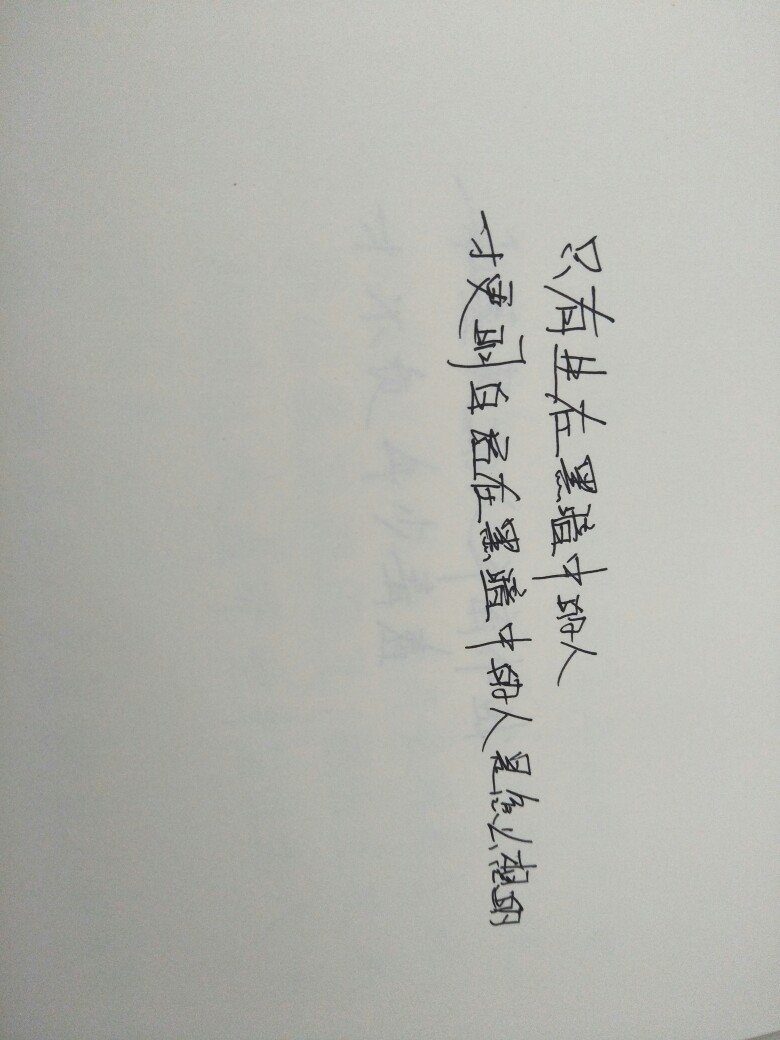 只有生在黑暗中的人
才更明白活在黑暗中的人是怎么想的